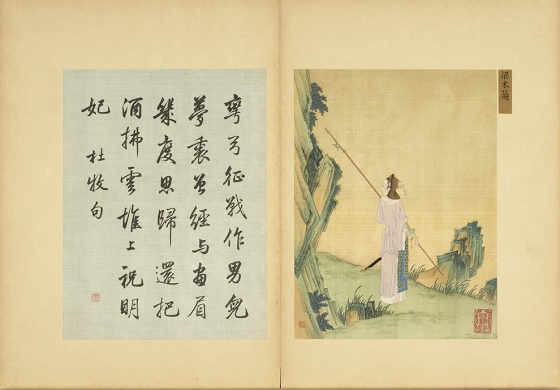 木蘭
彎弓征戰作男兒
夢裏曾經與畫眉
幾度思歸還把
酒拂雲堆上祝明
妃 杜牧句